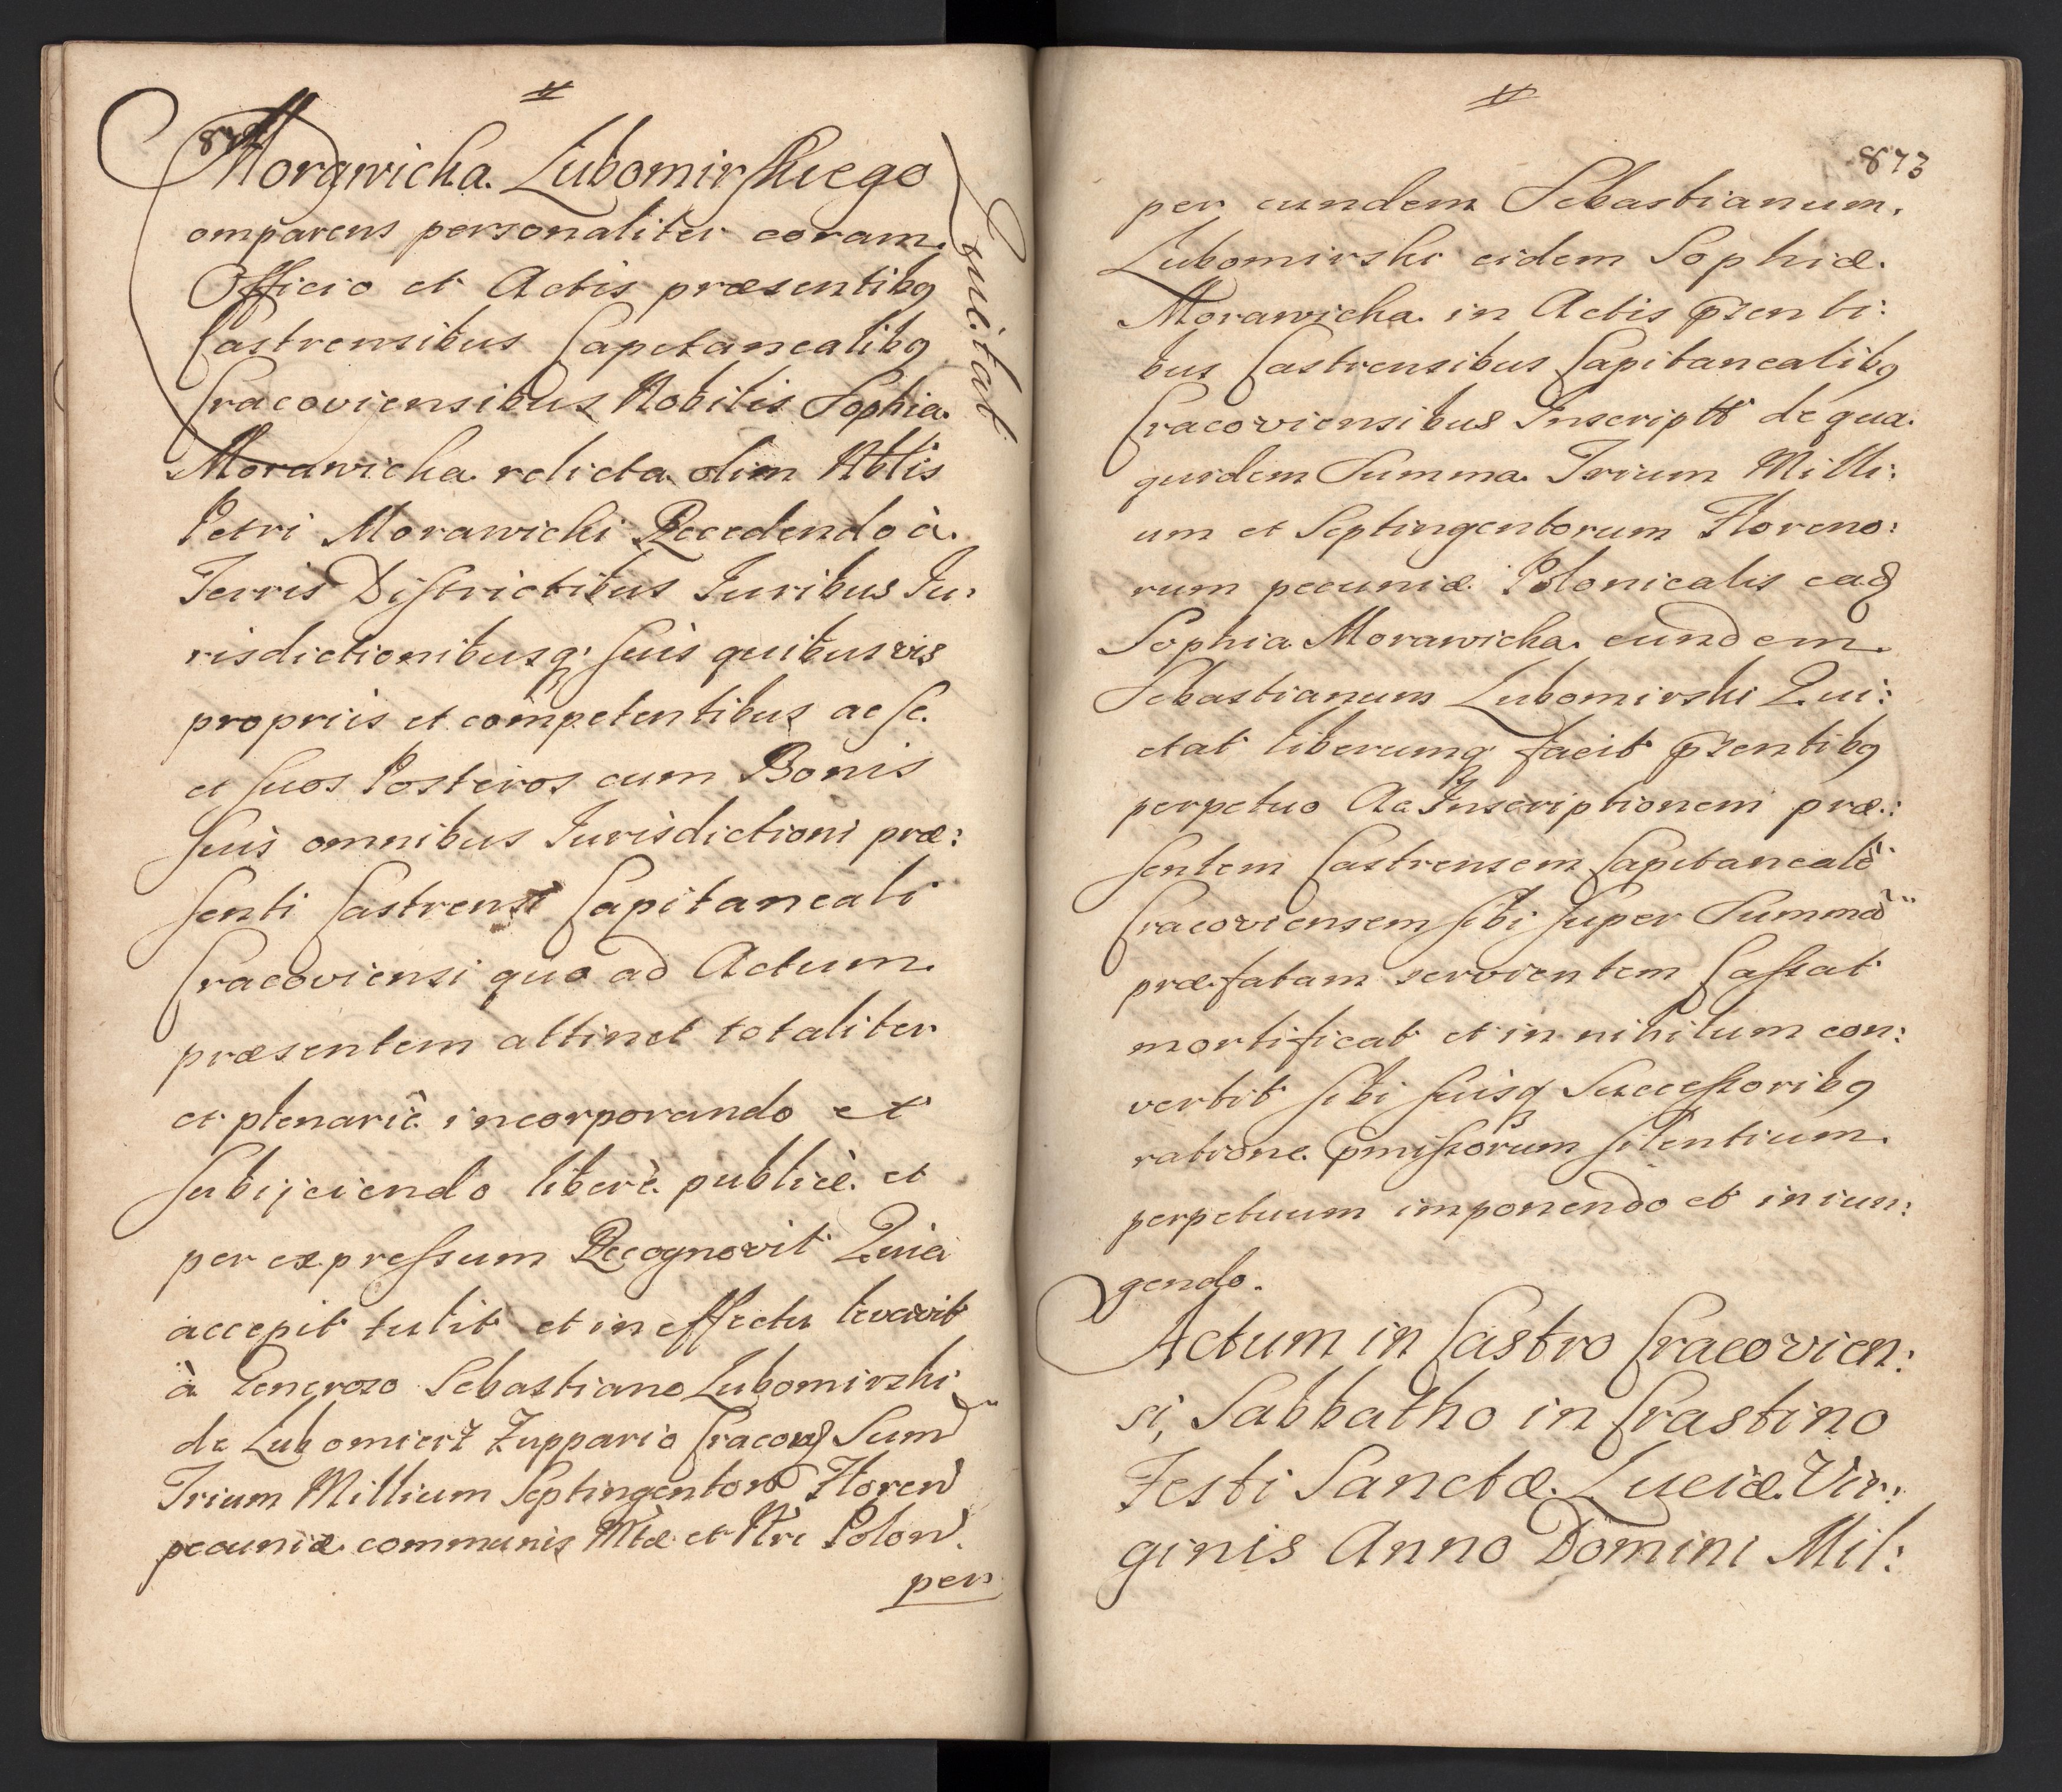 Morawicka Lubomirskiego
Quietat
omparens personaliter coram
Officio et Actis præsentibq
Castrensibus Capetanealibq
Cracoviensibus Nobilis Sophia
Morawicka relicta olim Nblis
Petri Morawicki Recedendo à
Terris Districtibus Iuribus Iu:
risdictionibusq; suis quibusvis
propriis et competentibus ac se
et suos Posteros cum Bonis
suis omnibus Iurisdictioni præ:
senti Castrensi Capitaneali
Cracoviensi quo ad Actum
præsentem attinet totaliter
et plenariè incorporando et
subijciendo liberè publicè et
per expressum Recognovit Quia
accepit tulit et in effectu levavit
à Generoso Sebastiano Lubomirski
de Lubomierz Zuppario Cracov Sum
Trium Millium Septingentor Floren
pecuniæ communis Mtæ et Nri Polon
per
873
per eundem Sebastianum
Lubomirski eidem Sophiæ
Morawicka in Actis pzenti:
bus Castrensibus Capitanealibq
Cracoviensibus Inscriptt de qua
quidem Summa Trium Milli:
um et Septingentorum Floreno:
rum pecuniæ Polonicalis ead
Sophia Morawicka eundem
Sebastianum Lubomirski Qui:
etat liberumq facit pzentibq
perpetuo Ac Inscriptionem præ:
sentem Castrensem Capitanealē
Cracoviensem sibi super Summā
præfatam servientem Cassat
mortificat et in nihilum con:
vertit sibi suisq Successoribq
ratione pmissorum silentium
perpetuum imponendo et iniun:
gendo.
Actum in Castro Cracovien:
si, Sabbatho in Crastino
Festi Sanctæ Luciæ Vir:
ginis Anno Domini Mil: